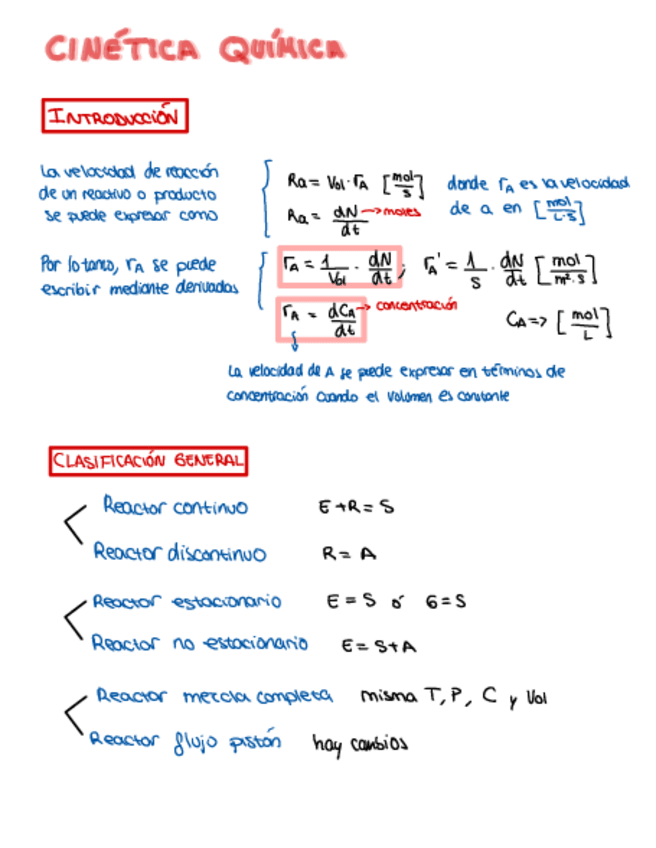 CINÉTICA QUÍMICA
INTRODUCCIÓN
La velocidad de reacción
de un reactivo o producto
se puede expresar como
Ra = Vol · rA [mol/s]
Ra = dN/dt → moles
donde rA es la velocidad
de a en [mol/L·s]
Por lo tanto, rA se puede
escribir mediante derivadas
rA = 1/Vol · dN/dt ; rA' = 1/S · dN/dt [mol/m²·s]
rA = dCA/dt → concentración
CA => [mol/L]
La velocidad de A se puede expresar en términos de
concentración cuando el volumen es constante
CLASIFICACIÓN GENERAL
Reactor continuo E+R= S
Reactor discontinuo R= A
Reactor estacionario E = S ó G=S
Reactor no estacionario E= S+A
Reactor mezcla completa misma T, P, C y Vol
Reactor flujo pistón hay cambios